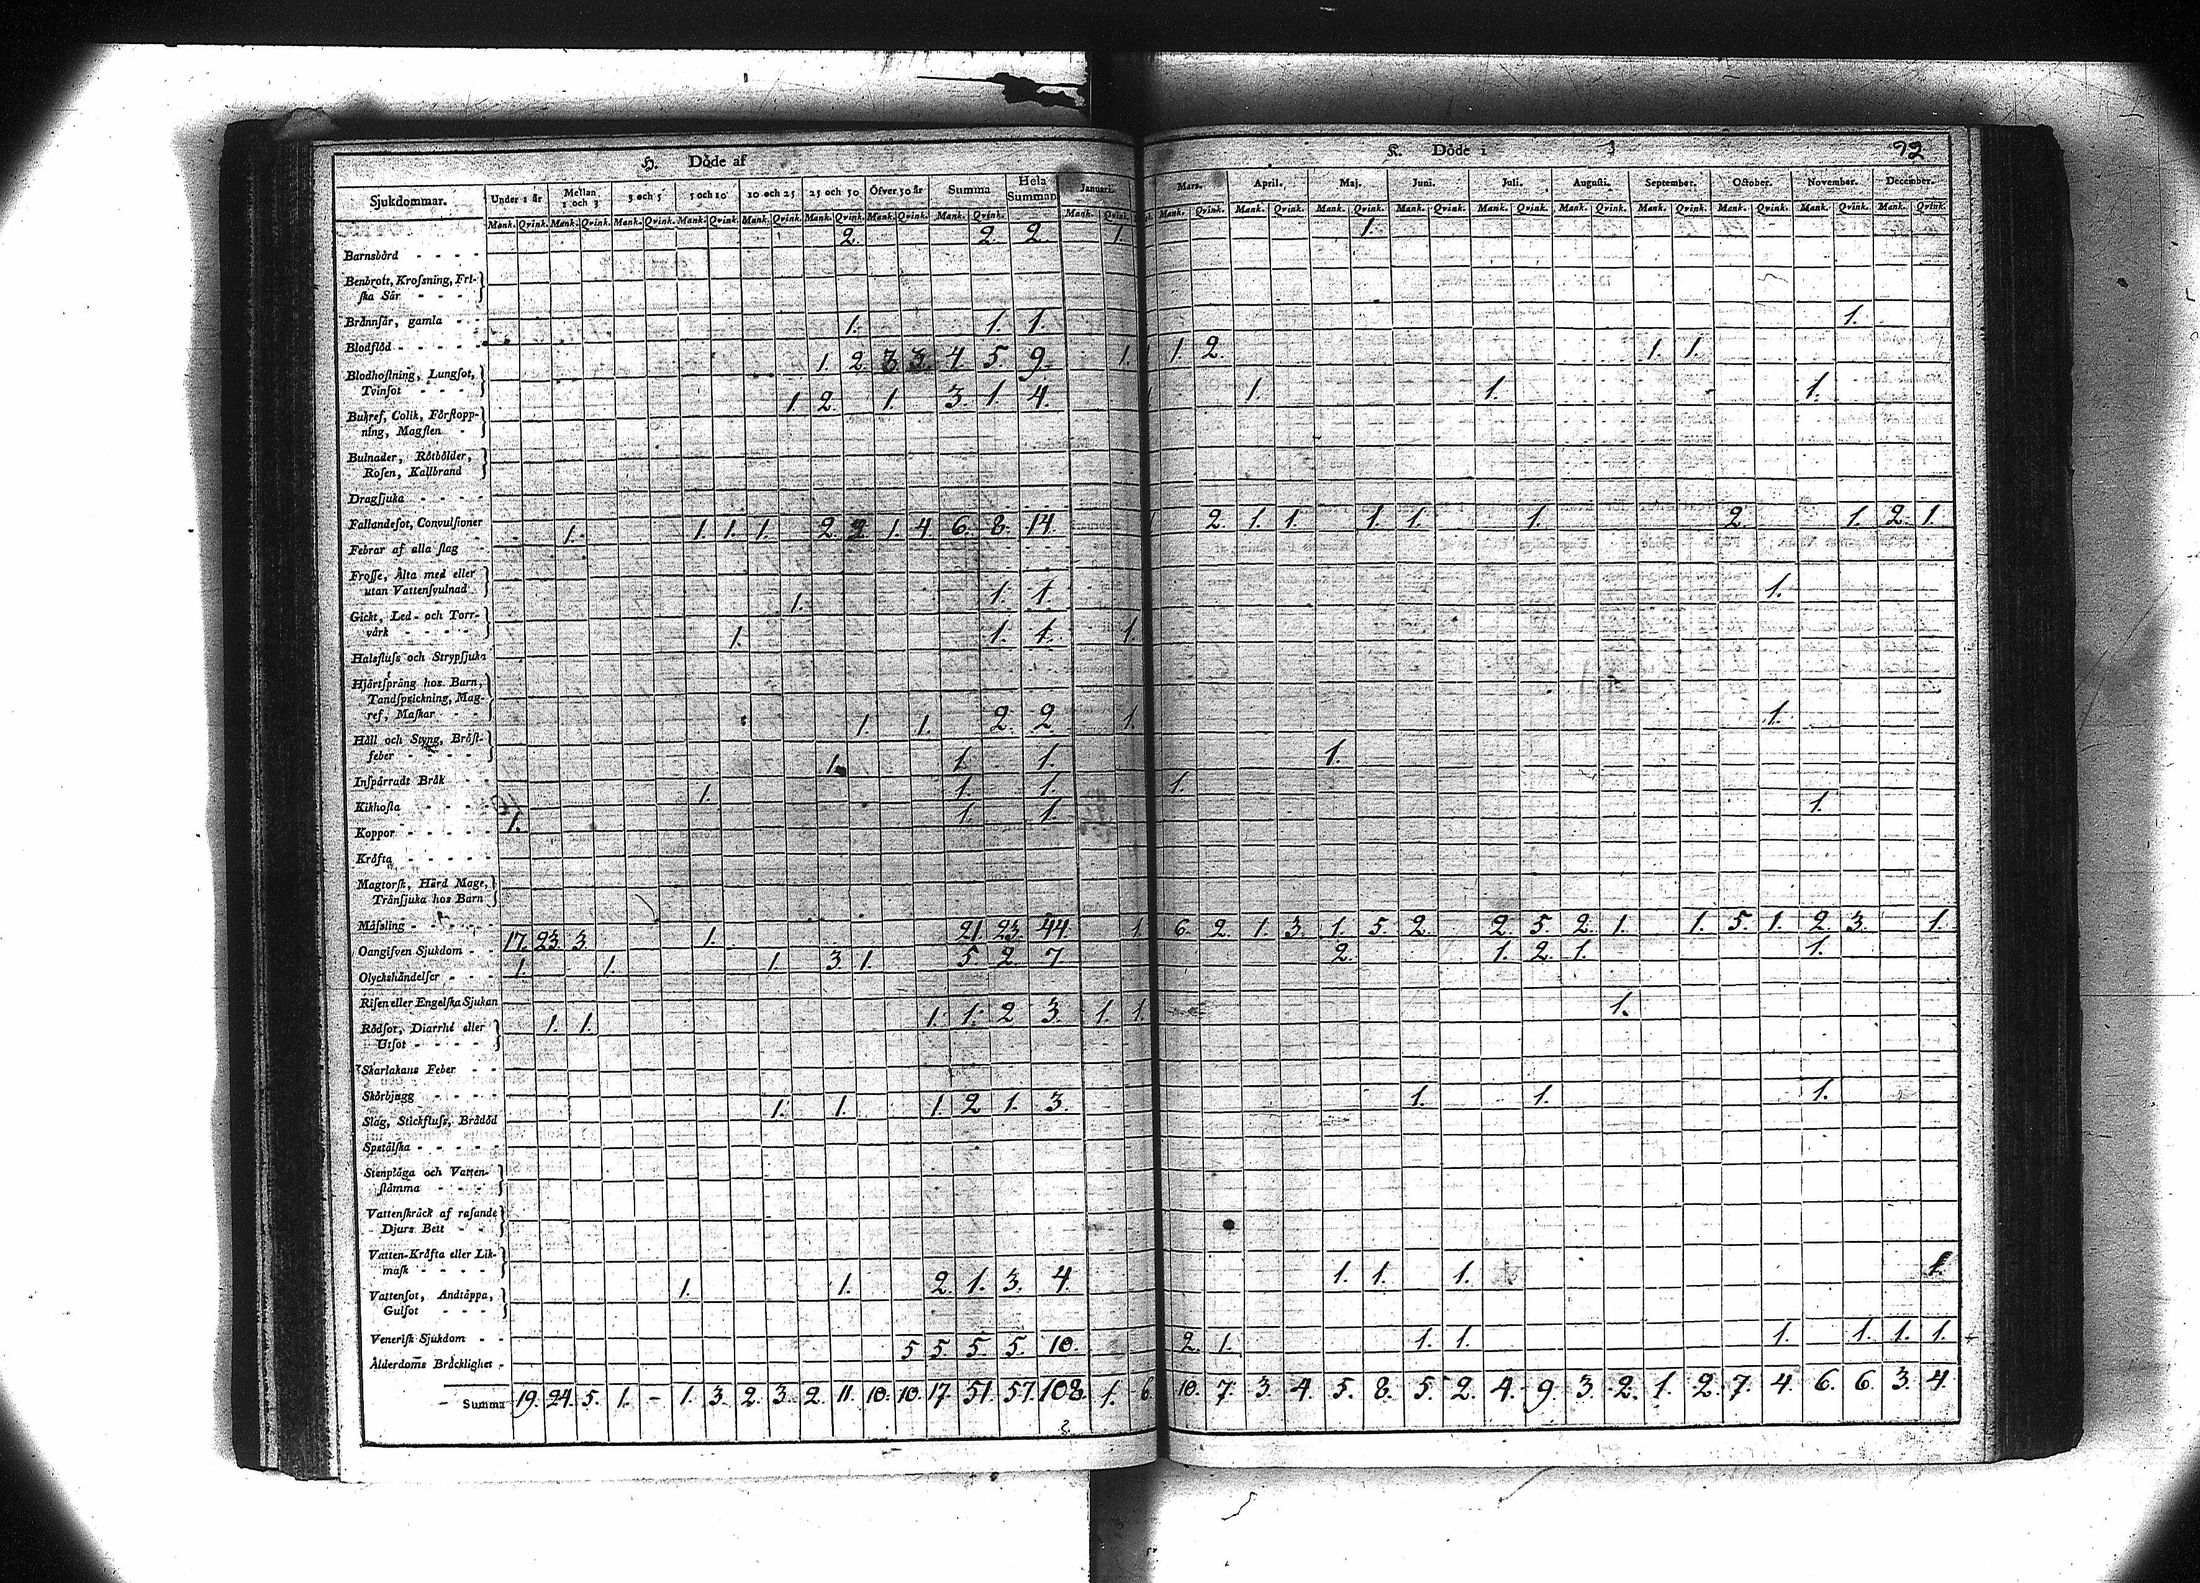 H. Döde af
K. Döde i
92
Sjukdommar. Under 1 år Mellan 1 och 3 3 och 5 5 och 10 10 och 25 25 och 50 Öfver 50 år Summa Hela Summan Januari. Mars. April. Maj. Juni. Juli. Augusti. September. October. November. December.
Mank. Qvink. Mank. Qvink. Mank. Qvink. Mank. Qvink. Mank. Qvink. Mank. Qvink. Mank. Qvink. Mank. Qvink. Mank. Qvink. Mank. Qvink. Mank. Qvink. Mank. Qvink. Mank. Qvink. Mank. Qvink. Mank. Qvink. Mank. Qvink. Mank. Qvink. Mank. Qvink. Mank. Qvink.
Barnsbörd - - - - 2. 2. 2. 1. 1.
Benbrott, Krosning, Fri-
ska Sår - - -
Brännsår, gamla - - 1. 1. 1. 1.
Blodflöd - - - - - 1. 2. 3. 3. 4. 5. 9. 1. 1. 2. 1. 1.
Blodhostning, Lungsot,
Tvinsot - - - - 1. 2. 1. 3. 1. 4. 1. 1. 1.
Bukref, Colik, Förstopp-
ning, Magsten -
Bulnader, Rötbölder,
Rosen, Kallbrand
Dragsjuka - - - -
Fallandesot, Convulsioner 1. 1. 1. 1. 2. 2. 1. 4. 6. 8. 14. 2. 1. 1. 1. 1. 1. 2. 1. 2. 1.
Febrar af alla slag -
Frosse, Älta med eller
utan Vattensvulnad 1. 1. 1. 1.
Gickt, Led- och Torr-
värk - - - - 1. 1. 1. 1.
Halsfluss och Strypsjuka
Hjärtsprång hos Barn,
Tandsprickning, Mag-
ref, Maskar - - 1. 1. 2. 2. 1. 1.
Håll och Styng, Bröst-
feber - - - - 1. 1. 1. 1.
Inspärradt Bråk - - 1. 1. 1. 1.
Kikhosta - - - - 1. 1. 1. 1.
Koppor - - - - -
Kräfta - - - - -
Magtorsk, Hård Mage,
Tränsjuka hos Barn
Mässling - - - - - 17. 23. 3. 1. 21. 23. 44. 1. 6. 2. 1. 3. 1. 5. 2. 2. 5. 2. 1. 1. 5. 1. 2. 3. 1.
Oangifven Sjukdom - - 1. 1. 1. 3. 1. 5. 2. 7 2. 1. 2. 1. 1.
Olyckshändelser - - -
Risen eller Engelska Sjukan 1. 1. 1. 1. 2 3. 1. 1. 1.
Rödsot, Diarrhé eller
Utsot - - - -
Skarlakans Feber - -
Skörbjugg - - - - 1. 1. 1. 2 1. 3. 1. 1. 1.
Slag, Stickfluss, Brådöd
Spetälska - - - -
Stenplåga och Vatten-
stämma - - -
Vattenskräck af rasande
Djurs Bett - -
Vatten-Kräfta eller Lik-
mask - - - - 1. 1. 2. 1. 3. 4. 1. 1. 1. 1.
Vattensot, Andtäppa,
Gulsot - - -
Venerisk Sjukdom - - 5 5. 5. 5. 10. 2. 1. 1. 1. 1. 1. 1. 1.
Ålderdoms Bräcklighet -
Summa 19. 24. 5. 1. - 1. 3. 2. 3. 2. 11. 10. 10. 17. 51. 57. 108. 1. 6. 10. 7. 3. 4. 5. 8. 5. 2. 4. 9. 3. 2. 1. 2. 7. 4. 6. 6. 3. 4.